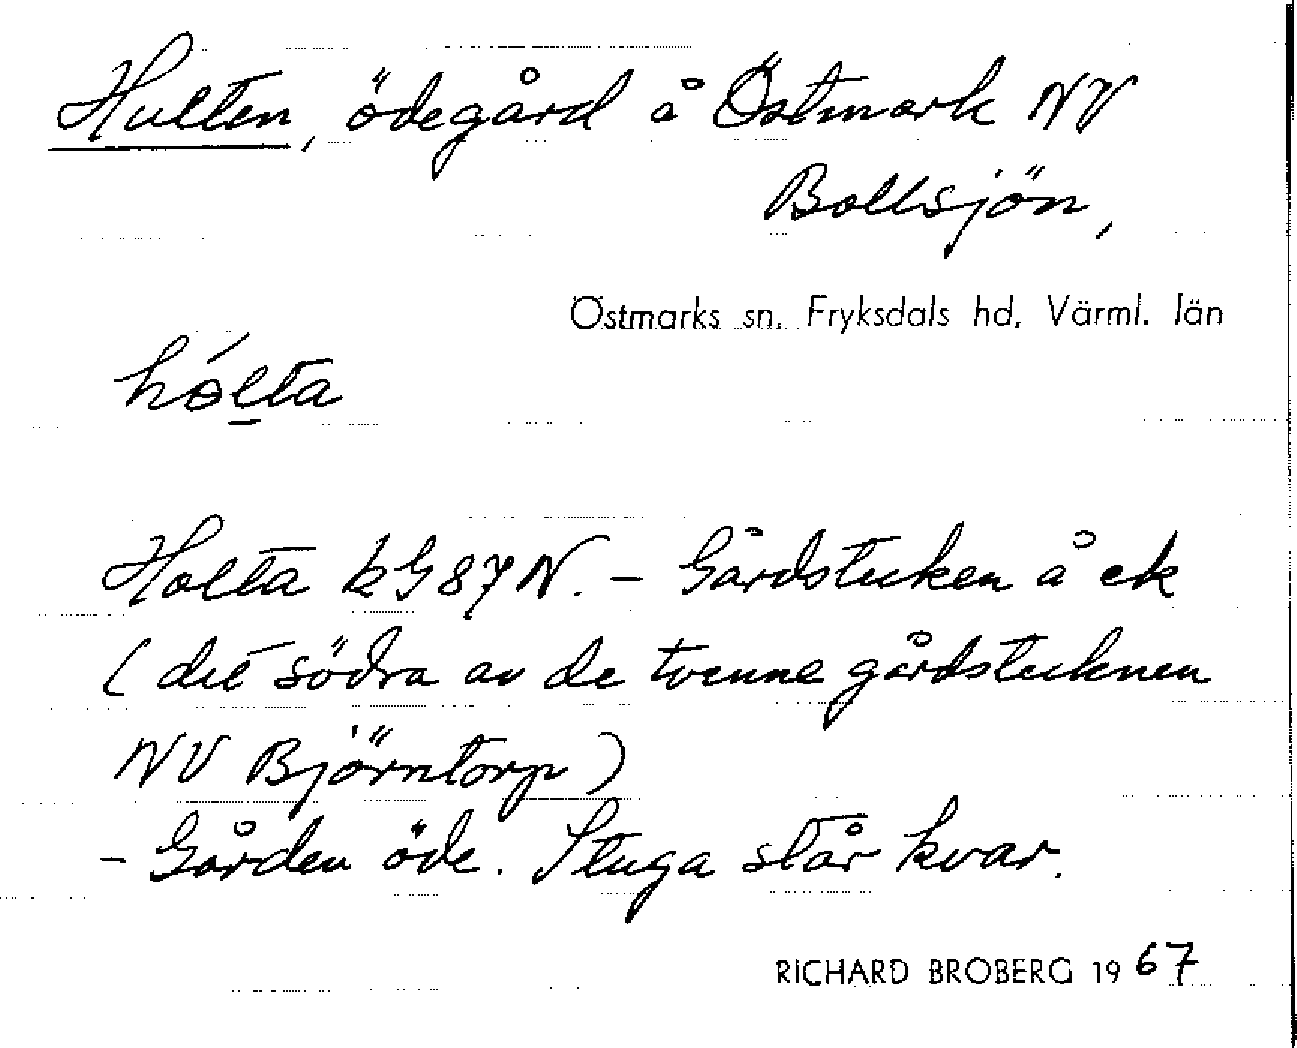 Hulten, ödegård å Östmark NV
Bollsjön,
Östmarks sn. Fryksdals hd. Värml. län
hó̵l̠ta
Holta k G 87 N. – Gårdstecken å ek
(det södra av de tvenne gårdstecknen
NV Björntorp)
– Gården öde. Stuga står kvar.
RICHARD BROBERG 1967